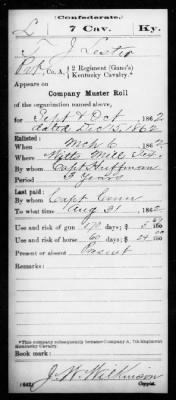 (Confederate.)
L 7 Cav. Ky.
T. J. Lester
Pvt, Co. A, 2 Regiment (Gano's) Kentucky Cavalry.*
Appears on
Company Muster Roll
of the organization named above,
for Sept & Oct, 1862
dated Dec 15, 1862
Enlisted:
When Mch 6, 1862
Where Mill
By whom Capt Huffman
Period 3 Years
Last paid:
By whom Capt Conn
To what time Aug 31, 1862
Use and risk of gun days; $
Use and risk of horse 60 days; $ 24 00/100
Present or absent Present
Remarks:
*This company subsequently became Company A, 7th Regiment Kentucky Cavalry.
Book mark:
(642) J. W. Wilkinson
Copyist.